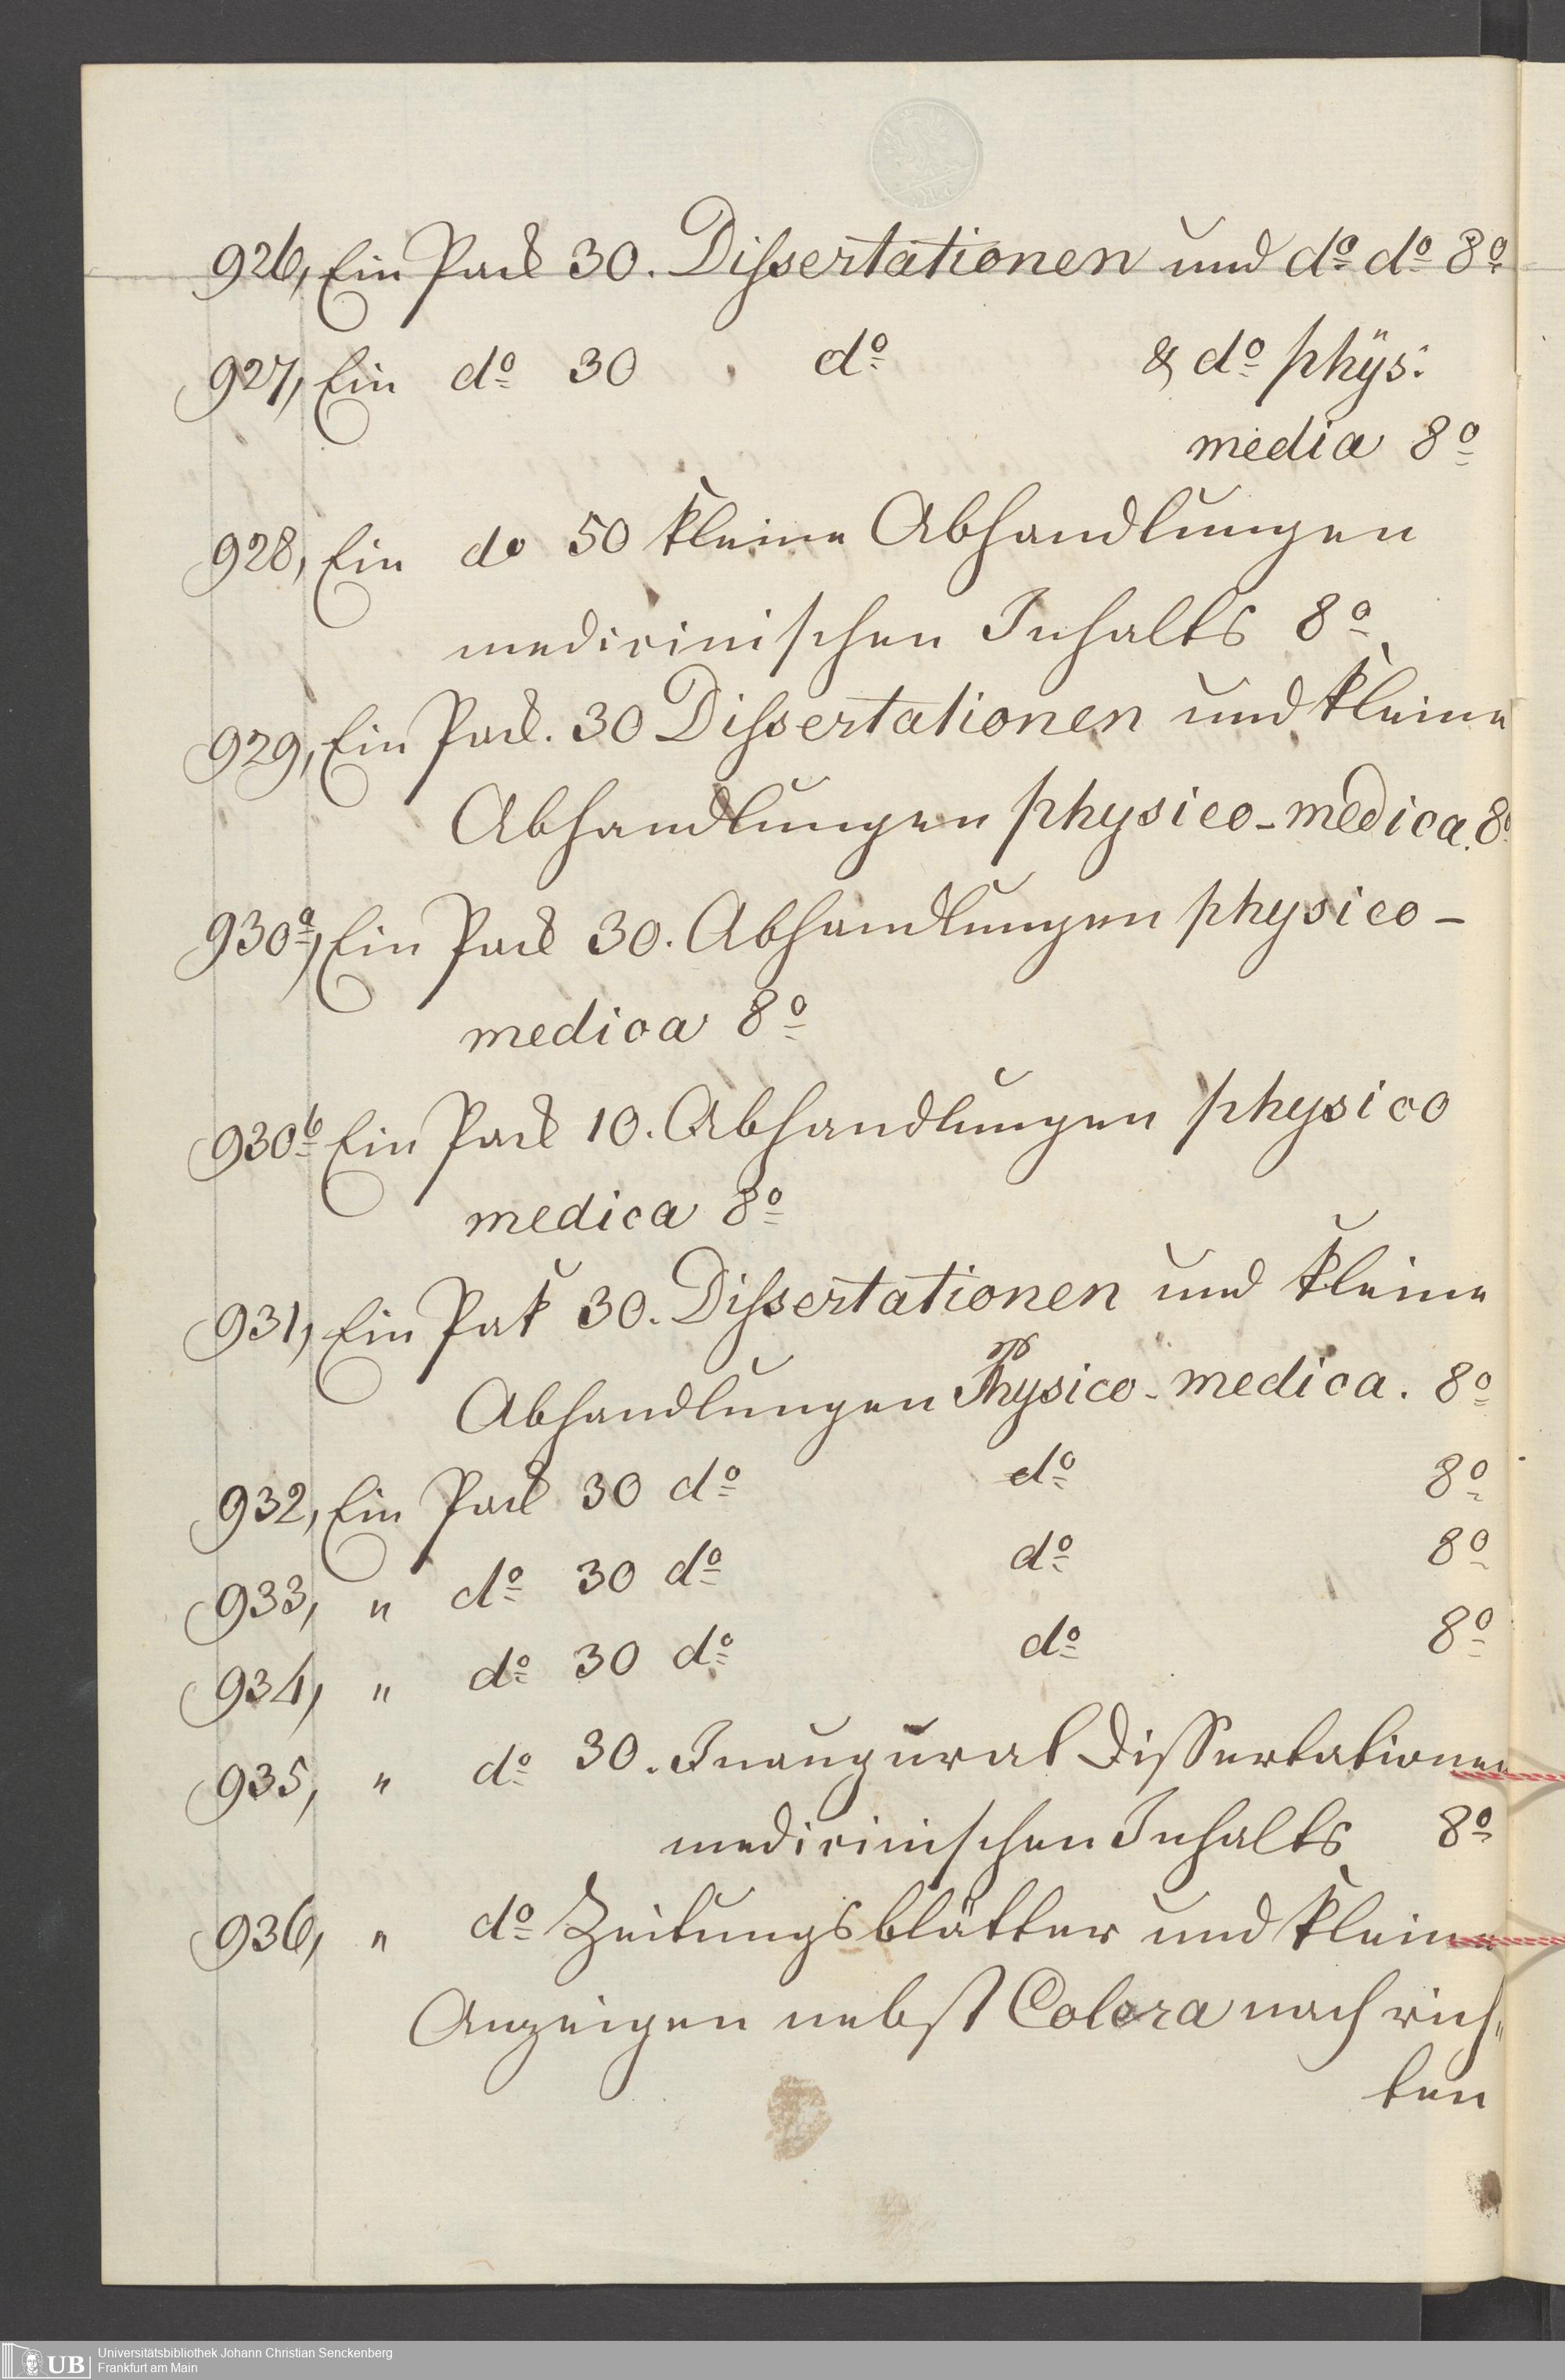 926, Ein Pack 30. Dissertationen und do do 8o
927, Ein do 30 do & do phÿs:
media 8o
928, Ein do 50 kleine Abhandlungen
medicinischen Inhalts 8o
929, Ein Pack. 30 Dissertationen und kleine
Abhandlungen physico-medica. 8o
930a, Ein Pack 30. Abhandlungen physico-
medica 8o
930b Ein Pack 10. Abhandlungen physico
medica 8o
931, Ein Pak 30. Dissertationen und kleine
Abhandlungen Physico-medica. 8o
932, Ein Pack 30 do do 8o
933, " do 30 do do 8o
934, " do 30 do do 8o
935, " do 30. Inaugural Dissertationen
medicinischen Inhalts 8o
936, " do Zeitungsblätter und kleine
Anzeigen nebst Colera nachrich„
ten
UB Universitätsbibliothek Johann Christian Senckenberg
Frankfurt am Main